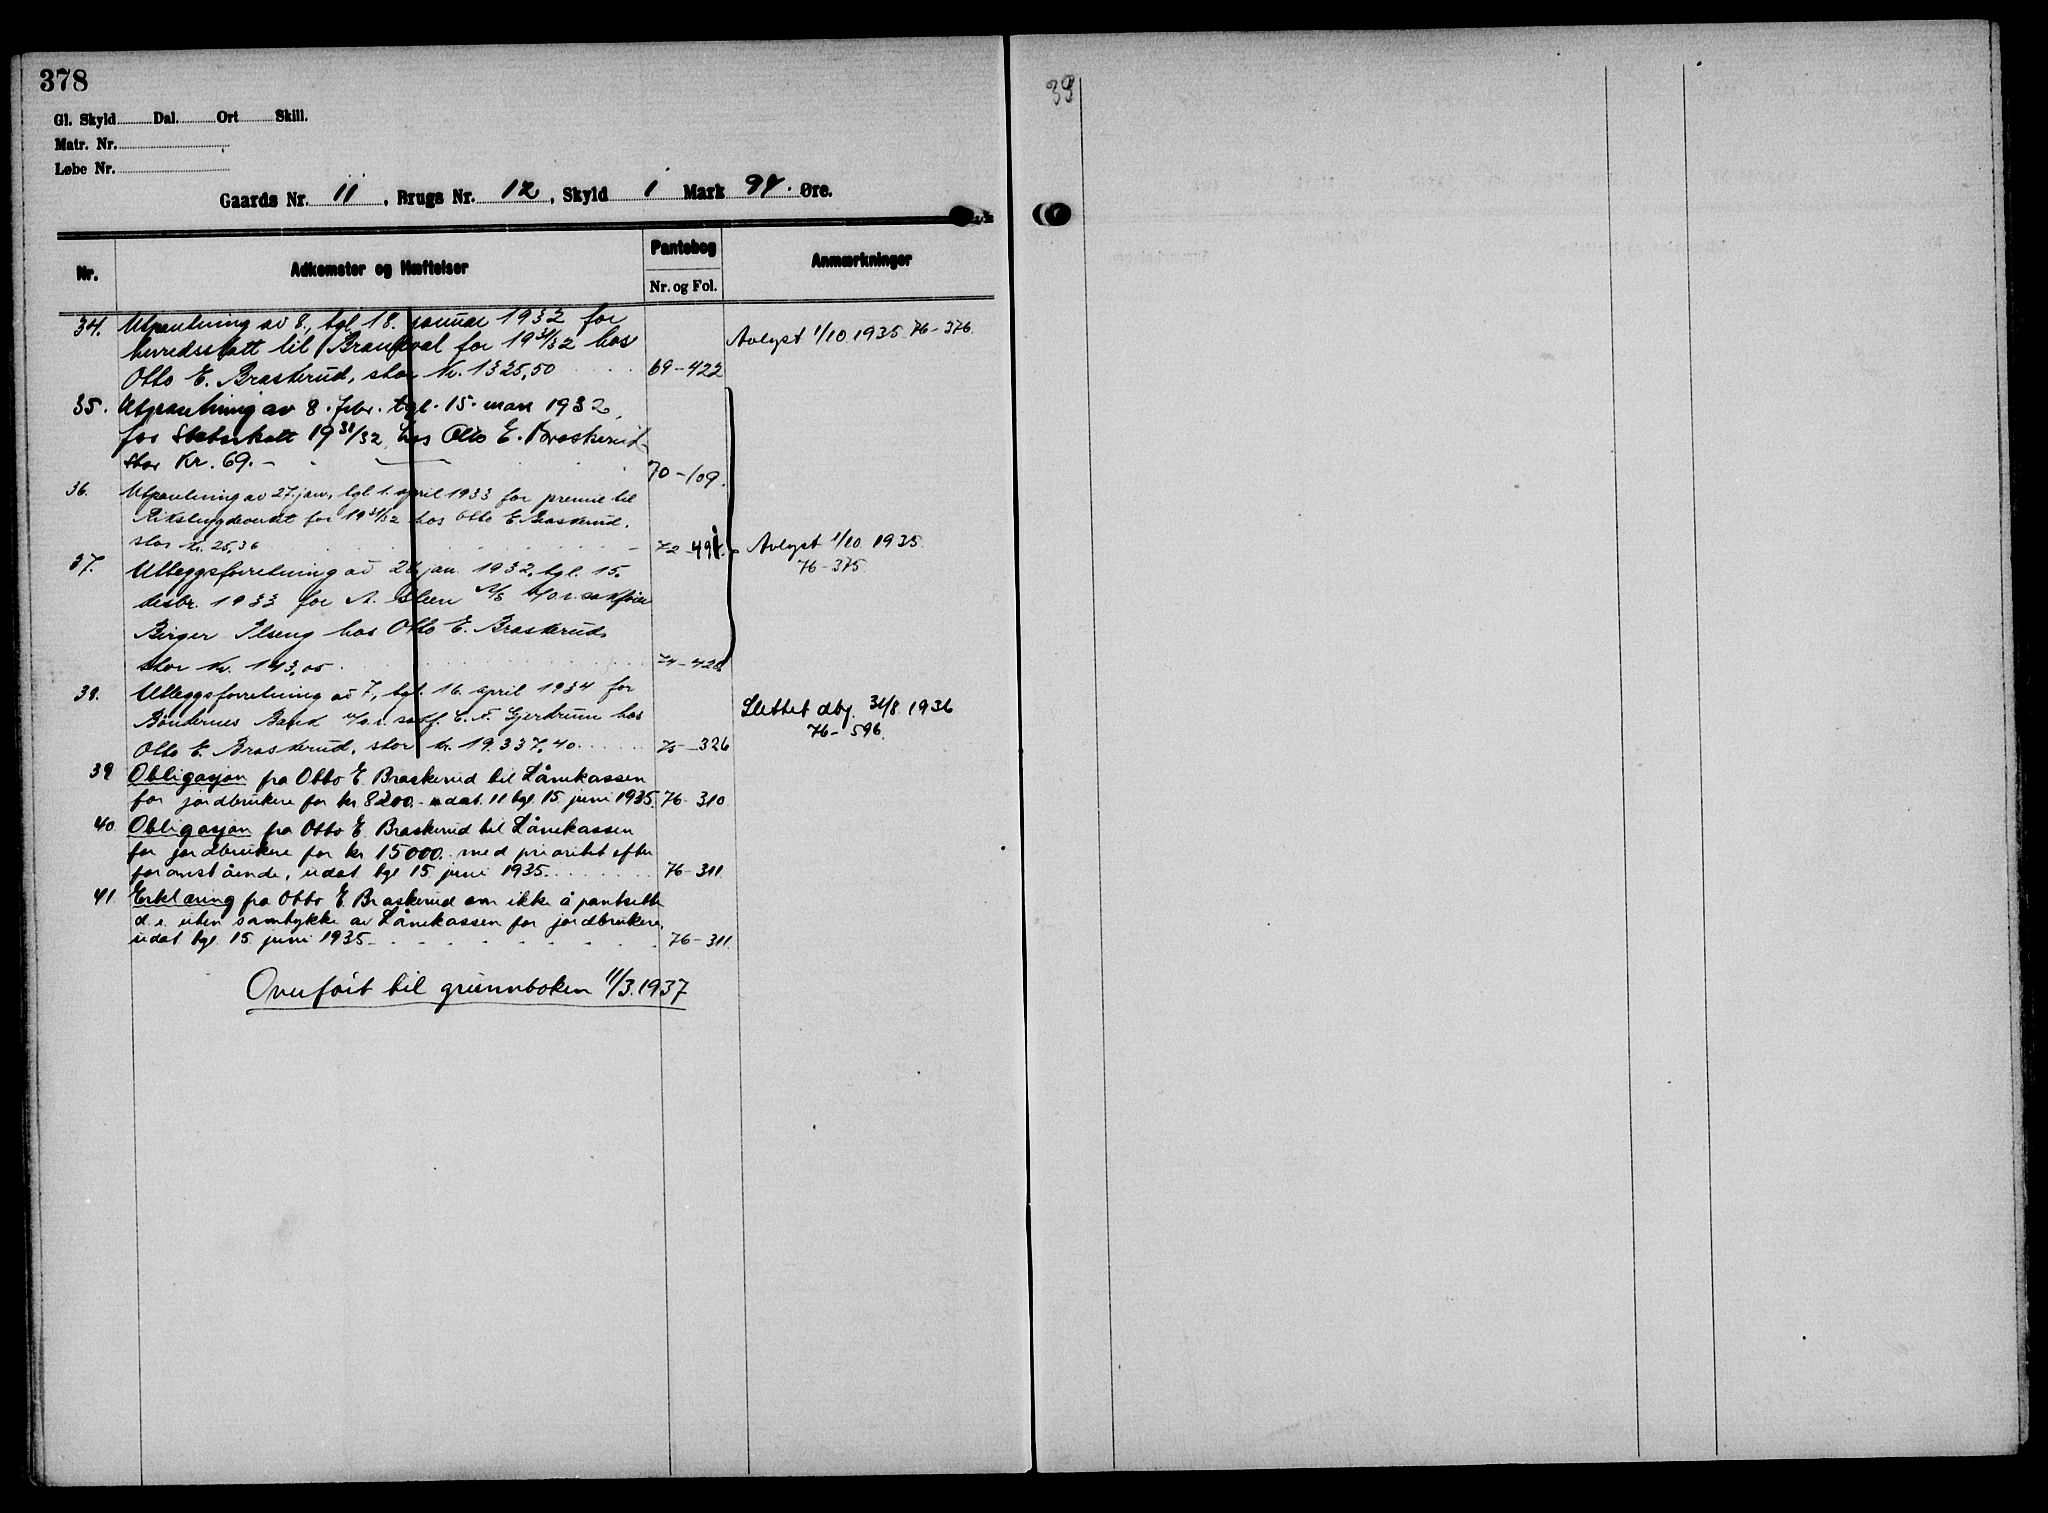 378
Gl. Skyld Dal. Ort Skill.
Matr. Nr.
Løbe Nr.
Gaards Nr. 11, Brugs Nr. 12, Skyld 1 Mark 94. Øre.
Nr. Adkomster og Hæftelser Pantebog Nr. og Fol. Anmærkninger
34. Utpantning av 8., tgl. 18. januar 1932 for
herredsskatt til Brandval for 1931/32 hos Avlyst 1/10 1935. 76-376.
Otto E. Braskerud, stor kr. 1325,50 69-422
35. Utpantning av 8. febr. tgl. 15. mars 1932,
for Statsskatt 1931/32 hos Otto E. Braskerud
stor Kr. 69.- 70-109.
36. Utpantning av 27. jan., tgl. 1. april 1933 for premie til
Rikstrygdeverket for 1931/32 hos Otto E. Braskerud,
stor kr. 25,36 72-491. Avlyst 1/10 1935.
76-375.
37. Utleggsforretning av jan. 1932, tgl. 15.
desbr. 1933 for A. Steen A/S v/o.r. sakfører
Birger Ilseng hos Otto E. Braskerud,
stor kr. 143,05 74-428.
38. Utleggsforretning av 7., tgl. 16. april 1934 for
Bøndernes Bank v/o.r. sakf. C. F. Gjerdrum hos Slettet dbj. 31/8 1936
76-596.
Otto E. Braskerud, stor kr. 19.337,40 75-326
39 Obligasjon fra Otto E Braskerud til Lånekassen
for jordbrukere for kr 8200.- dat. 11 tgl. 15. juni 1935. 76-310.
40 Obligasjon fra Otto E. Braskerud til Lånekassen
for jordbrukere for kr 15000.- med prioritet efter
foranstående, udat tgl 15 juni 1935. 76-311.
41 Erklæring fra Otto E Braskerud om ikke å pantsette
d. e. uten samtykke av Lånekassen for jordbrukere,
udat tgl. 15. juni 1935. 76-311.
Overført til grunnboken 11/3.1937
39